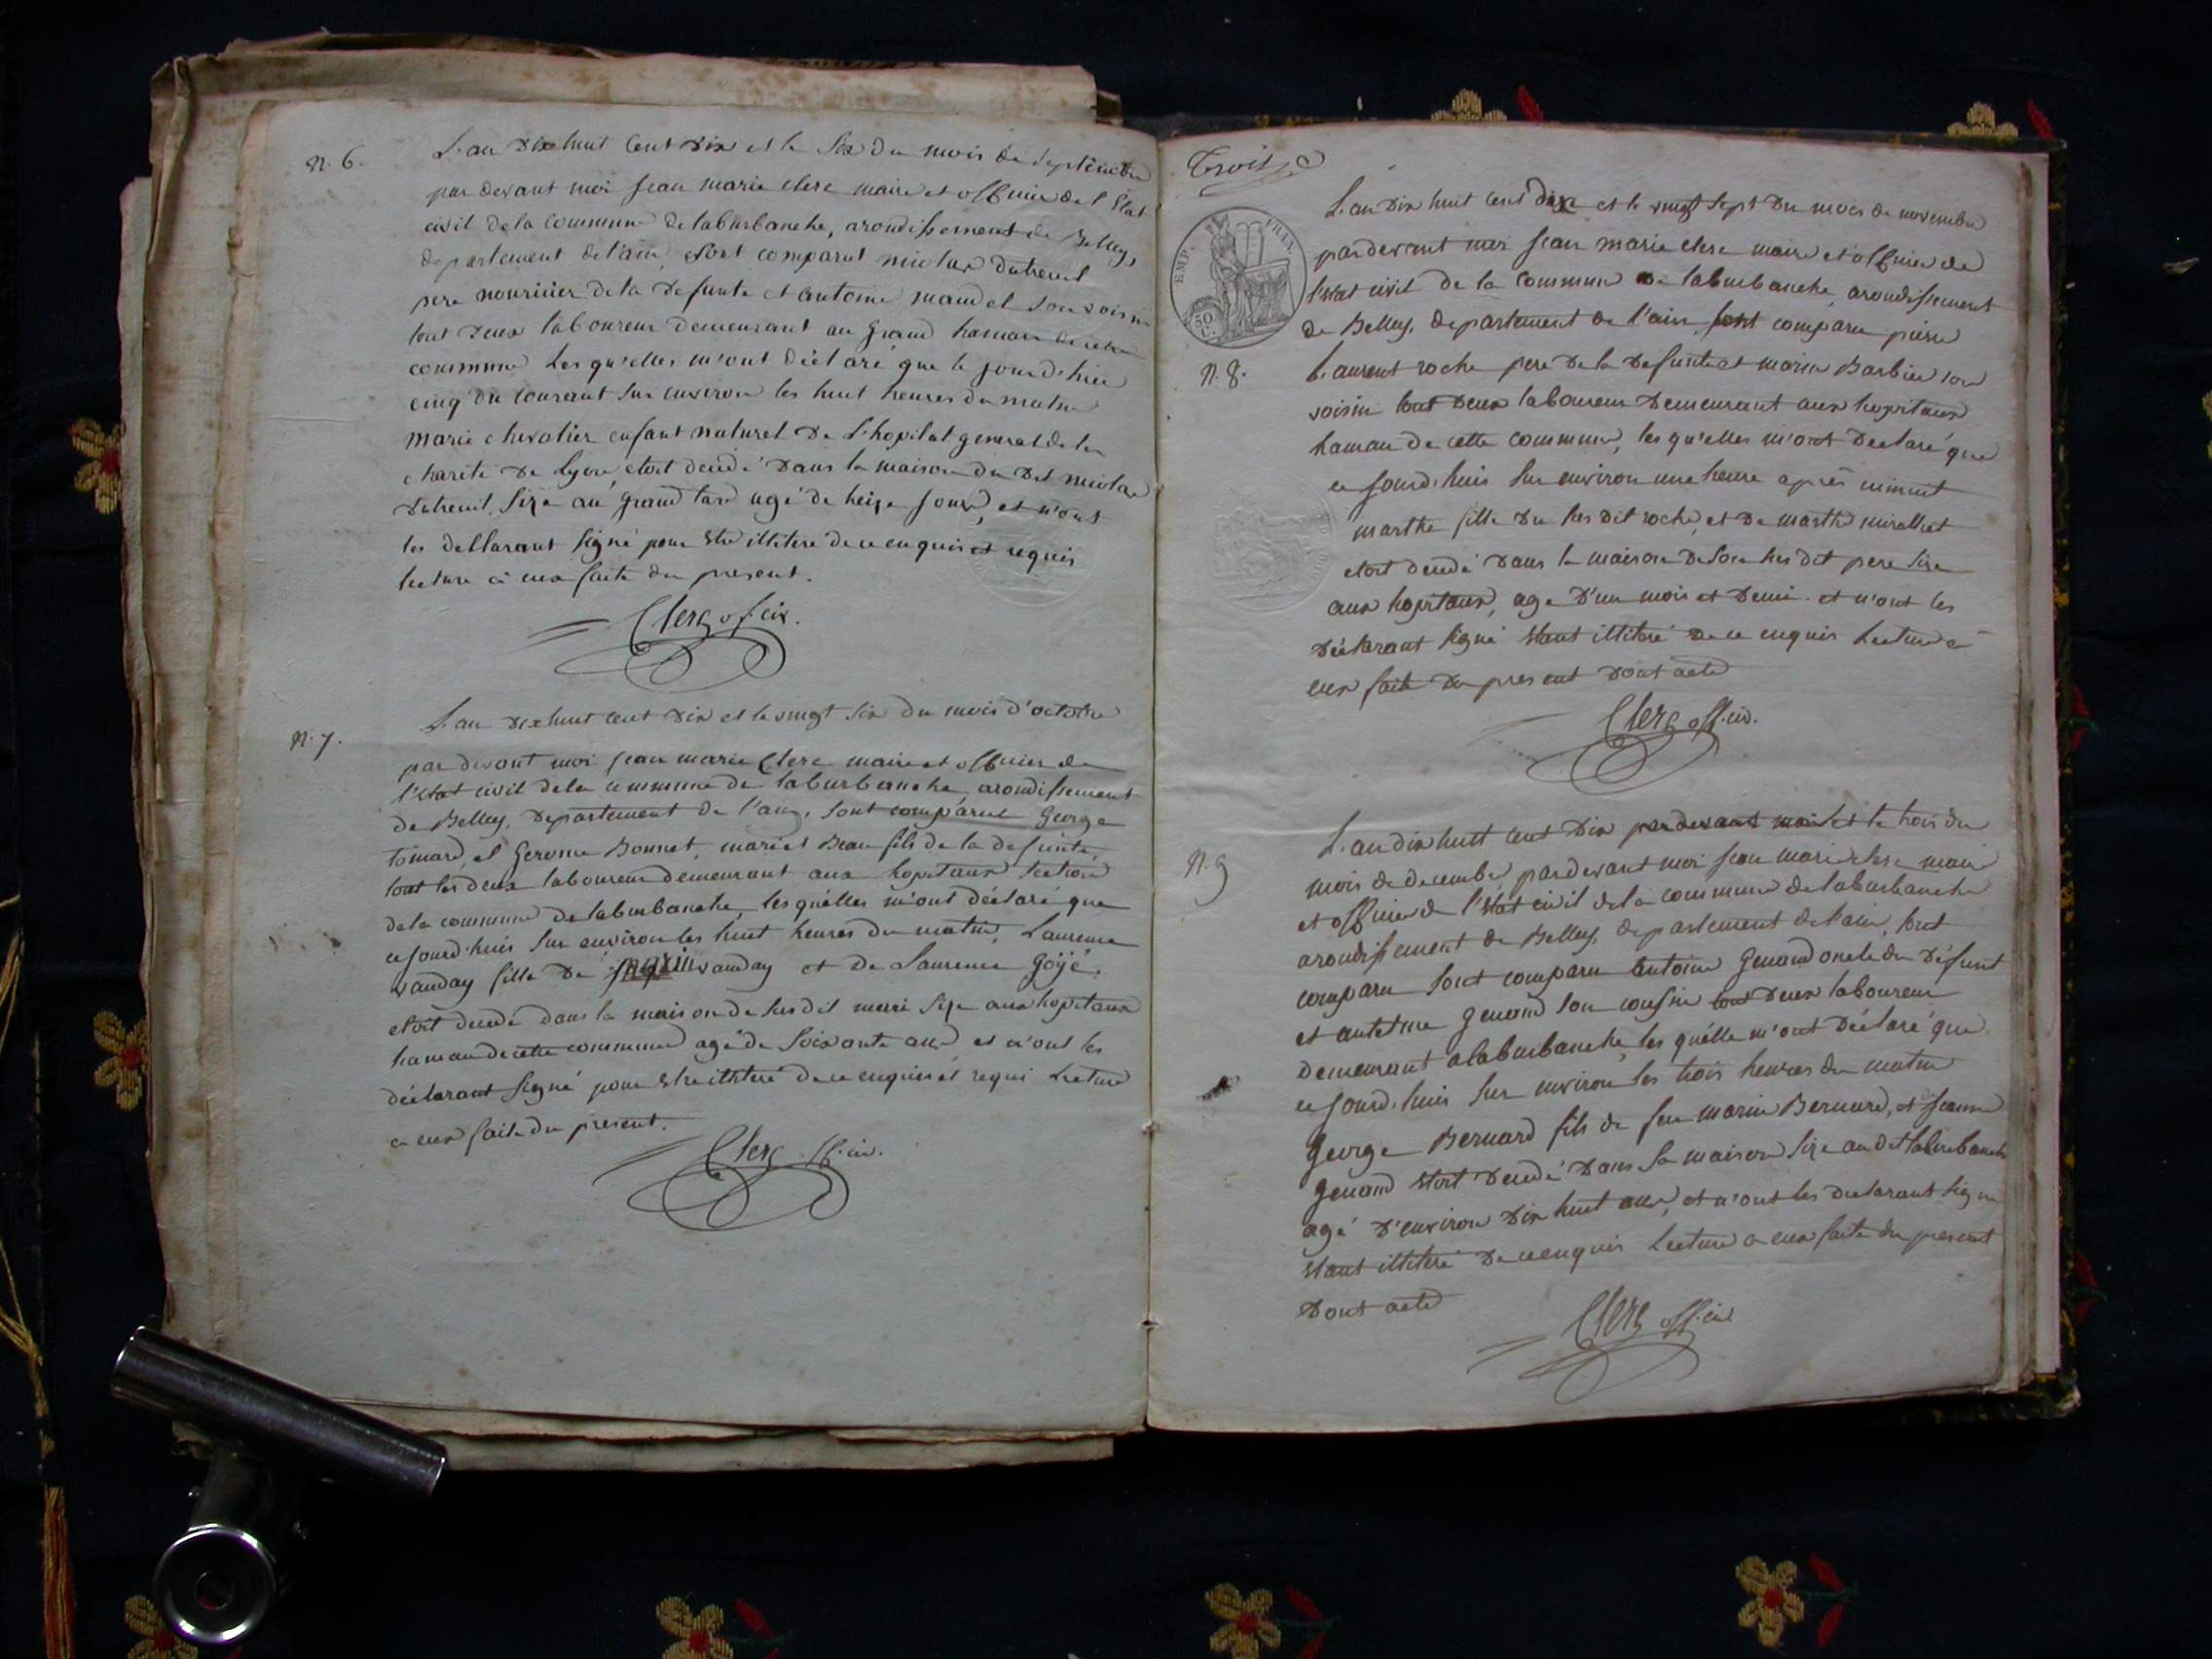 N. 6.
L'an Dixhuit Cent Dix et le Six Du mois de Septembre
par devant moi Jean marie clerc maire et officier de l'Etat
civil dela Commune de labursbanche, arondissement de Belley,
departement del'ain, sont comparut nicolas Dutreuil
pere nouricier dela Defunte et antoine mandel son voisin
tout Deux laboureur demeurant au Grand hamau de cette
commune Lesqu'elles m'ont déclaré que le jourd'hier
cinq du Courant sur environ les huit heures du matin
Marie chevalier enfant naturel De L'hopital general de la
charité De Lyon, etoit decedé Dans la maison du Dit nicolas
Dutreuil, Size au Grand agé de seize jours, et n'ont
les declarant Signé pour etre illiteré de ce enquis et requis
lecture a eux faite du present.
Clerc of. civ.
N. 7.
L'an Dixhuit cent Dix et le vingt Six du mois d'octobre
par devant moi Jean marie Clerc maire et officier de
l'etat civil dela commune de laburbanche, arondissement
de Belley, Departement de l'ain, sont comparut George
tomard, et Gerome Bonnet, mari et Beau fils de la defunte,
tout les deux laboureur demeurant aux hopitaux section
dela commune de laburbanche, lesquelles m'ont déclaré que
cejourd'huis sur environ les huit heures du matin, Laurence
vanday fille De vanday et De Laurence Goÿé,
etoit decedé dans la maison de susdit mari Size aux hopitaux
hamau de cette commune agé de soixante ans, et n'ont les
déclarant Signé pour etre illiteré de ce enquis et requi Lecture
a eux faite du present.
Clerc off. civ.
Troit
TIMP. FRAN.
50 C.
L'an Dix huit Cent dix et le vingt sept Du mois de novembre
pardevant moi Jean marie clerc maire et officier de
l'etat civil de la Commune de laburbanche, arondissement
de Belley, departement de l'ain, sont comparu pierre
N. 8.
Laurent roche pere De la Defunte et marin Barbier son
voisin tout Deux laboureur Demeurant aux hopitaux
hamau de cette commune, lesqu'elles m'ont Declaré que
ce jourd'huis sur environ une heure après minuit
marthe fille Du sus dit roche, et De marthe mirallet
etoit decedé Dans la maison De son sus dit pere Size
aux hopitaux, age D'un mois et Demi. et n'ont les
Déclarant Signé etant illiteré De ce enquis Lecture a
eux faite du present Dont acte
Clerc off. civ.
N. 9
L'an dix huit cent Dix pardevant moi et le trois du
mois de decembre, pardevant moi Jean marie clerc maire
et officier de l'etat civil dela commune de laburbanche
arondissement de Belley, departement de l'ain, sont
comparu sont comparu antoine Genand oncle du Défunt
et antelme genand son cousin tout Deux laboureur
Demeurant a laburbanche, les quélle m'ont Déclaré que
ce jourd'huis sur environ les trois heures du matin
George Bernard fils de feu marin Bernard, et Jeanne
genand etoit Decedé Dans sa maison Size au dit laburbanche
agé D'environ Dix huit ans, et n'ont les declarant Signé
etant illiteré De ce enquis Lecture a eux faite du present
Dont acte
Clerc off. civ.